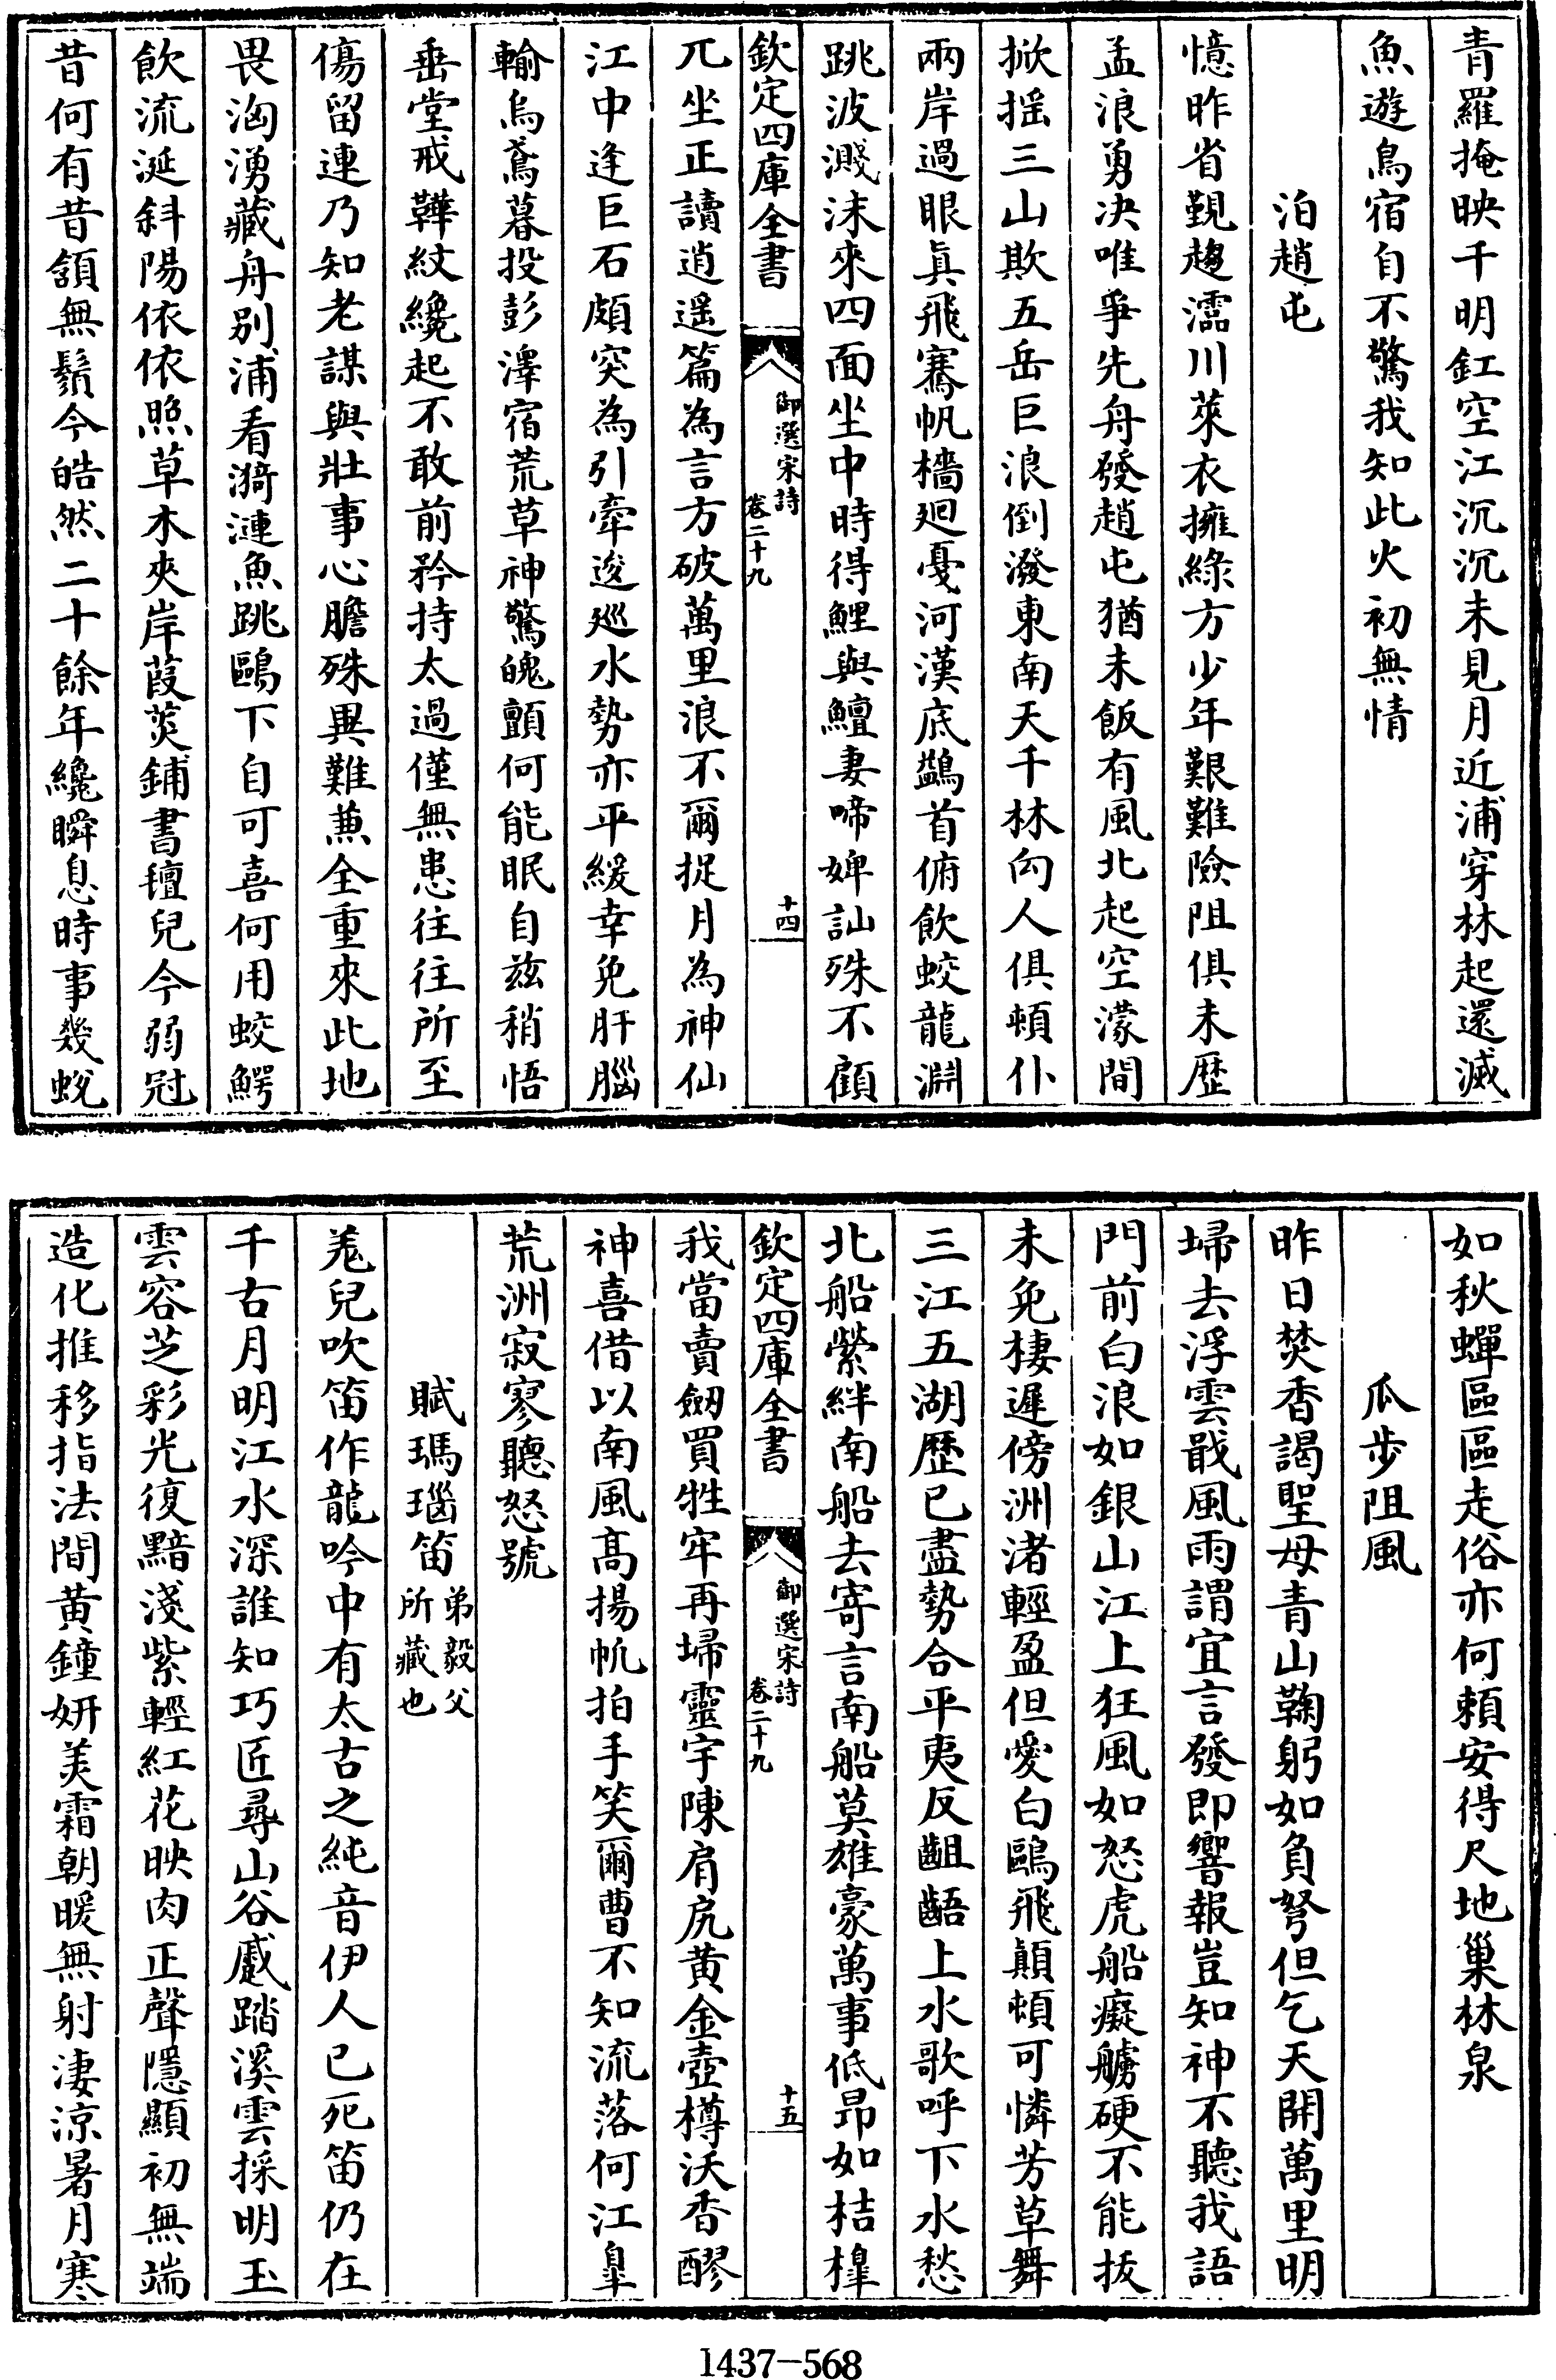 青羅掩映千明釭空江沉沉未見月近浦穿林起還滅
魚遊鳥宿自不驚我知此火初無情
泊趙屯
憶昨省覲趨濡川萊衣擁綠方少年艱難險阻俱未歴
孟浪勇决唯爭先舟發趙屯猶未飯有風北起空濛間
掀摇三山欺五岳巨浪倒潑東南天千林向人俱頓仆
兩岸過眼真飛騫帆檣廻戞河漢底鷁首俯飲蛟龍淵
跳波濺沫來四面坐中時得鯉與鱣妻啼婢訕殊不顧
欽定四庫全書
御選宋詩
卷二十九
十四
兀坐正讀逍遥篇為言方破萬里浪不爾捉月為神仙
江中逢巨石頗突為引牽逡廵水勢亦平緩幸免肝腦
輸烏鳶暮投彭澤宿荒草神驚魄顫何能眠自兹稍悟
垂堂戒鞾紋纔起不敢前矜持太過僅無患往往所至
傷留連乃知老謀與壯事心膽殊異難兼全重來此地
畏洶湧藏舟别浦看漪漣魚跳鷗下自可喜何用蛟鰐
飲流涎斜陽依依照草木夾岸葭菼鋪書氊兒今弱冠
昔何有昔頷無鬚今皓然二十餘年纔瞬息時事幾蛻
如秋蟬區區走俗亦何頼安得尺地巢林泉
瓜步阻風
昨日焚香謁聖母青山鞠躬如負弩但乞天開萬里明
埽去浮雲戢風雨謂宜言發即響報豈知神不聽我語
門前白浪如銀山江上狂風如怒虎船癡艣硬不能拔
未免棲遲傍洲渚輕盈但愛白鷗飛顛頓可憐芳草舞
三江五湖歴已盡勢合平夷反齟齬上水歌呼下水愁
北船縈絆南船去寄言南船莫雄豪萬事低昂如桔槹
欽定四庫全書
御選宋詩
卷二十九
十五
我當賣劒買牲牢再埽靈宇陳肩尻黄金壺樽沃香醪
神喜借以南風髙揚帆拍手笑爾曹不知流落何江臯
荒洲寂寥聽怒號
賦瑪瑙笛弟毅父所藏也
羗兒吹笛作龍吟中有太古之純音伊人已死笛仍在
千古月明江水深誰知巧匠尋山谷蹙踏溪雲採明玉
雲容芝彩光復黯淺紫輕紅花映肉正聲隱顯初無端
造化推移指法間黄鐘妍美霜朝暖無射淒涼暑月寒
1437-568